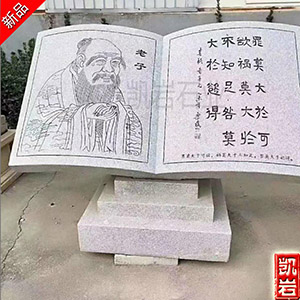 新品
老子
罪莫大於可
欲祸莫大於
不知足咎莫
大於欲得
凯岩石
凯岩